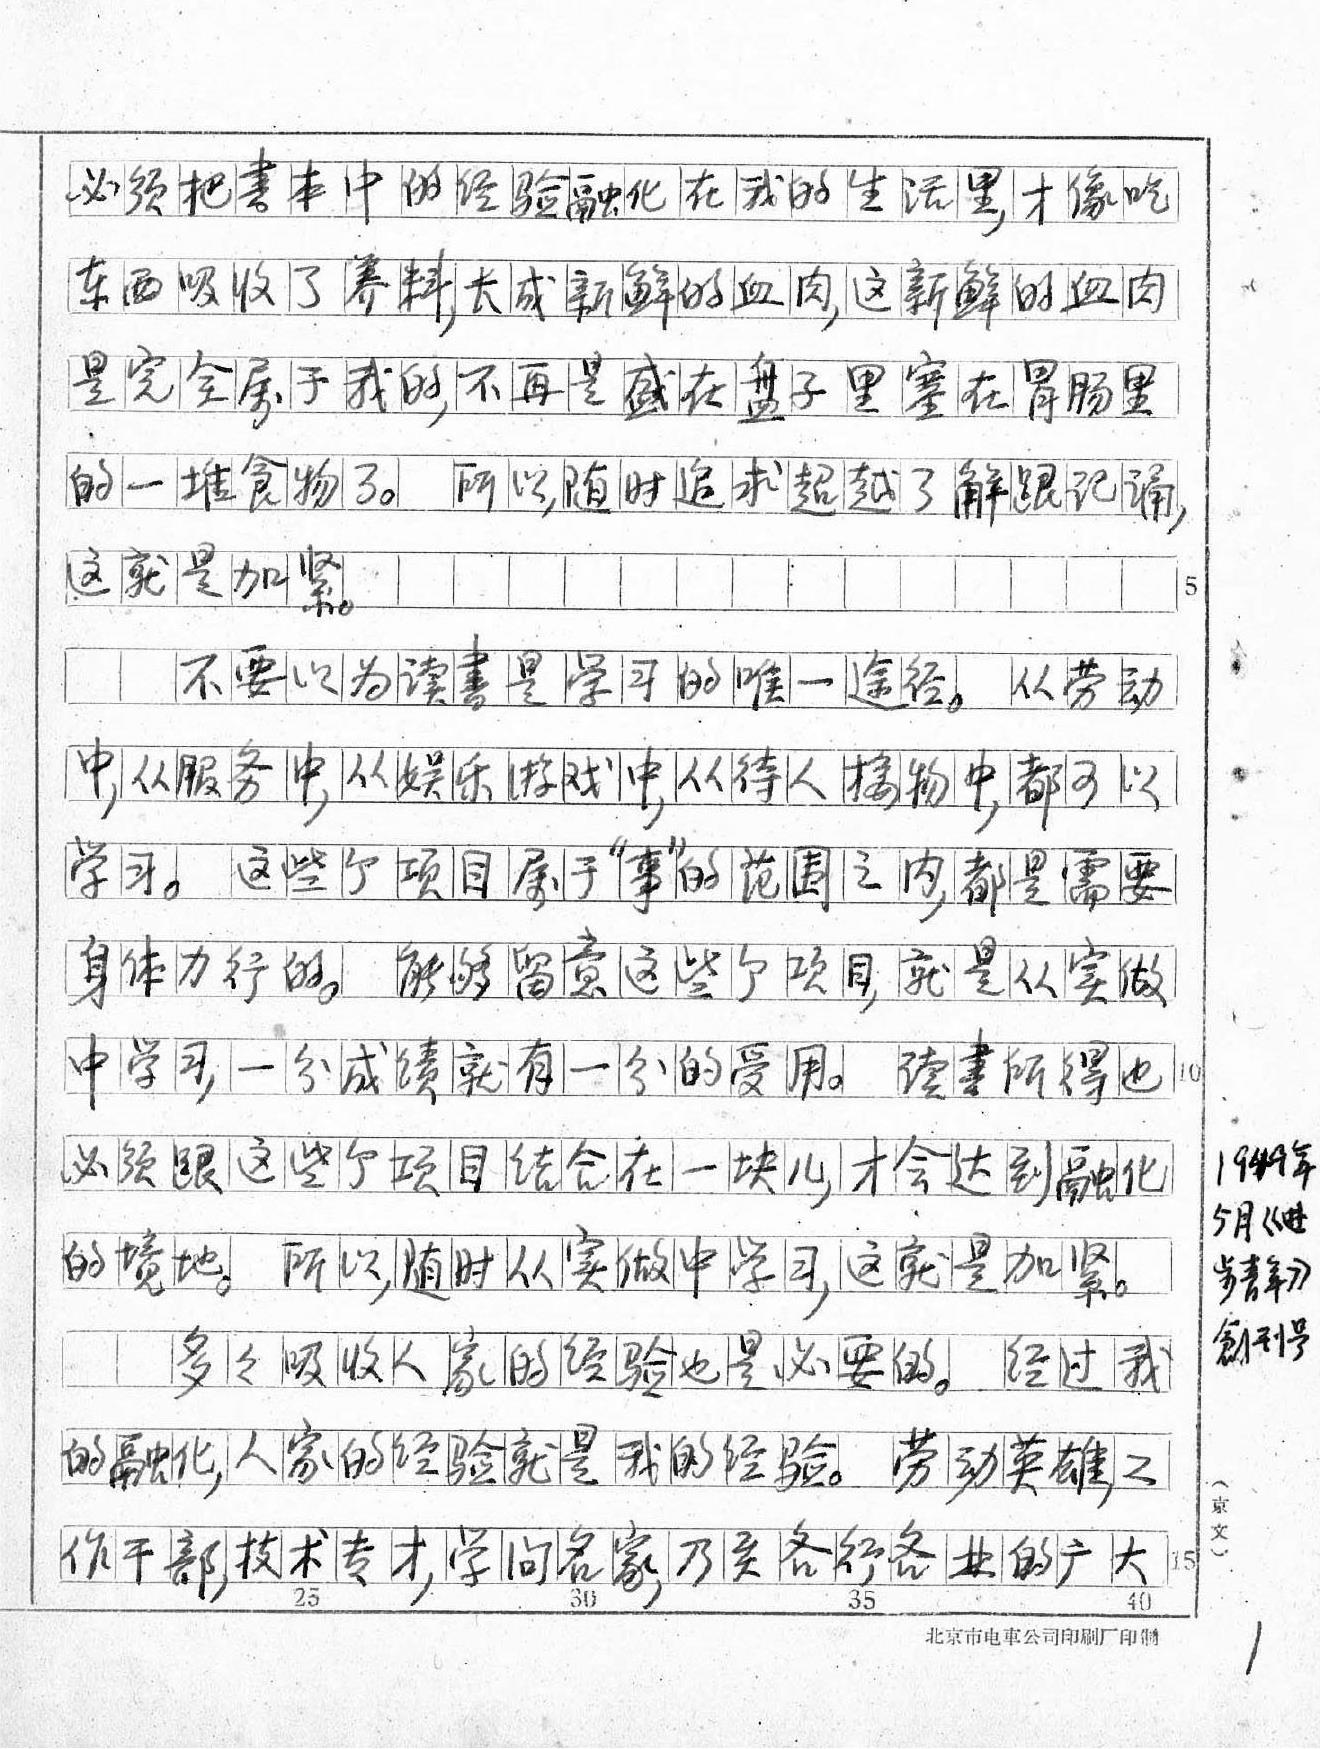 必须把书本中的经验融化在我的生活里,才像吃
东西吸收了养料,长成新鲜的血肉,这新鲜的血肉
是完全属于我的,不再是盛在盘子里塞在胃肠里
的一堆食物了。 所以,随时追求超越了解跟记诵,
这就是加紧。
5
不要以为读书是学习的唯一途径。 从劳动
中,从服务中,从娱乐游戏中,从待人接物中,都可以
学习。 这些个项目属于“事”的范围之内,都是需要
身体力行的。 能够留意这些个项目,就是从实做
中学习,一分成绩就有一分的受用。 读书所得也
10
必须跟这些个项目结合在一块儿,才会达到融化
的境地。 所以,随时从实做中学习,这就是加紧。
多々吸收人家的经验也是必要的。 经过我
的融化,人家的经验就是我的经验。 劳动英雄,工
作干部,技术专才,学问名家,乃至各行各业的广大
15
25 30 35 40
1949年
5月《进
步青年》
创刊号
(京文)
北京市电車公司印刷厂印制
1